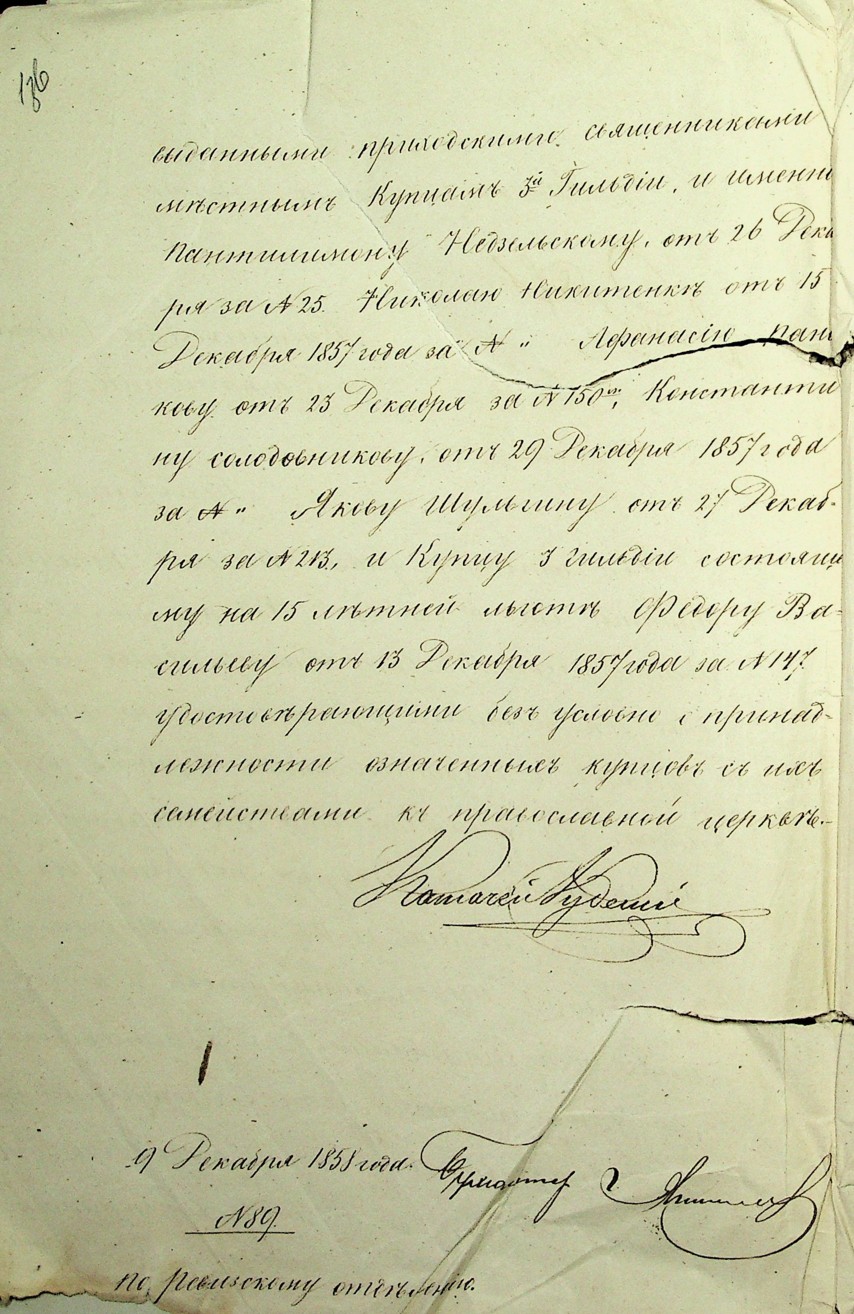 136
выданными приходскими священниками
мѣстнымъ Купцамъ 3й Гильдіи, и именно
Пантилимону Недзельскому, отъ 26 Дека
ря за N 25. Николаю Никитенкѣ отъ 15
Декабря 1857 года за N „ Афанасію Пан
кову отъ 23 Декабря за N 150м, Константи
ну солодовникову, отъ 29 Декабря 1857 года
за N „ Якову Шульгину отъ 27 Декаб-
ря за N 213, и Купцу 3 гильдіи состояще
му на 15 лѣтней льготѣ Федору Ва-
сильеву отъ 13 Декабря 1857 года за N 147
удостовѣряющими безъ условно о принад-
лежности означенныхъ купцовъ съ ихъ
семействами къ православной церквѣ.-
9 Декабря 1858 года.
N 89.
по Ревизскому отдѣленію.